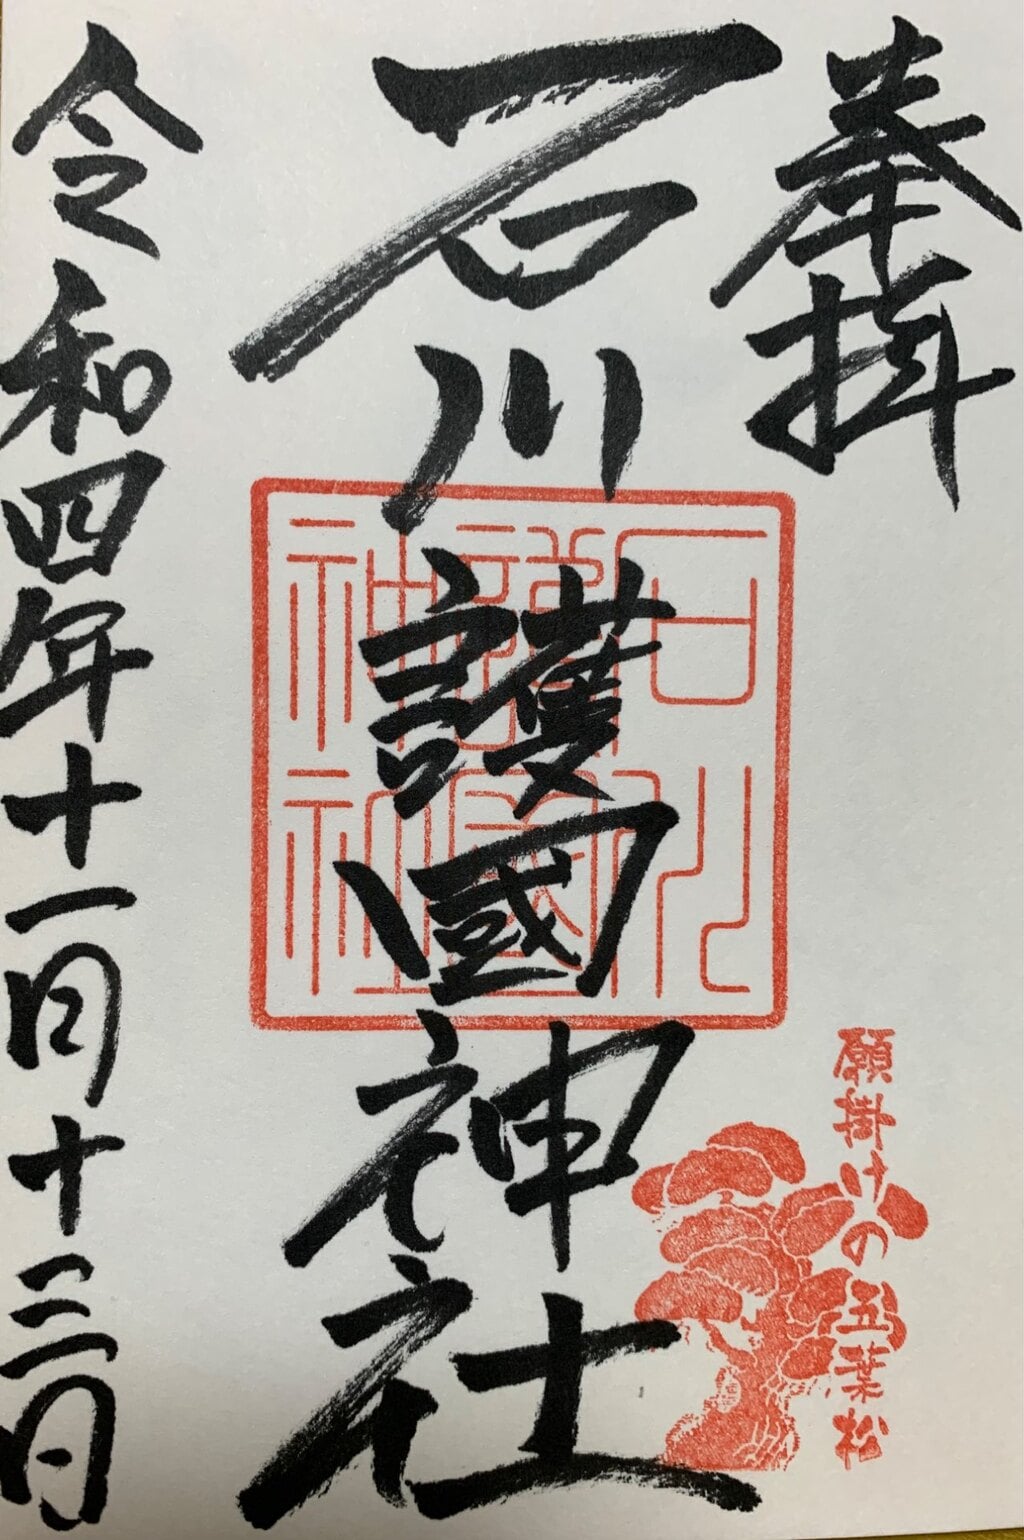 奉拝
願掛けの五葉松
石川護國神社
石川
護國
神社
令和四年十一月十三日